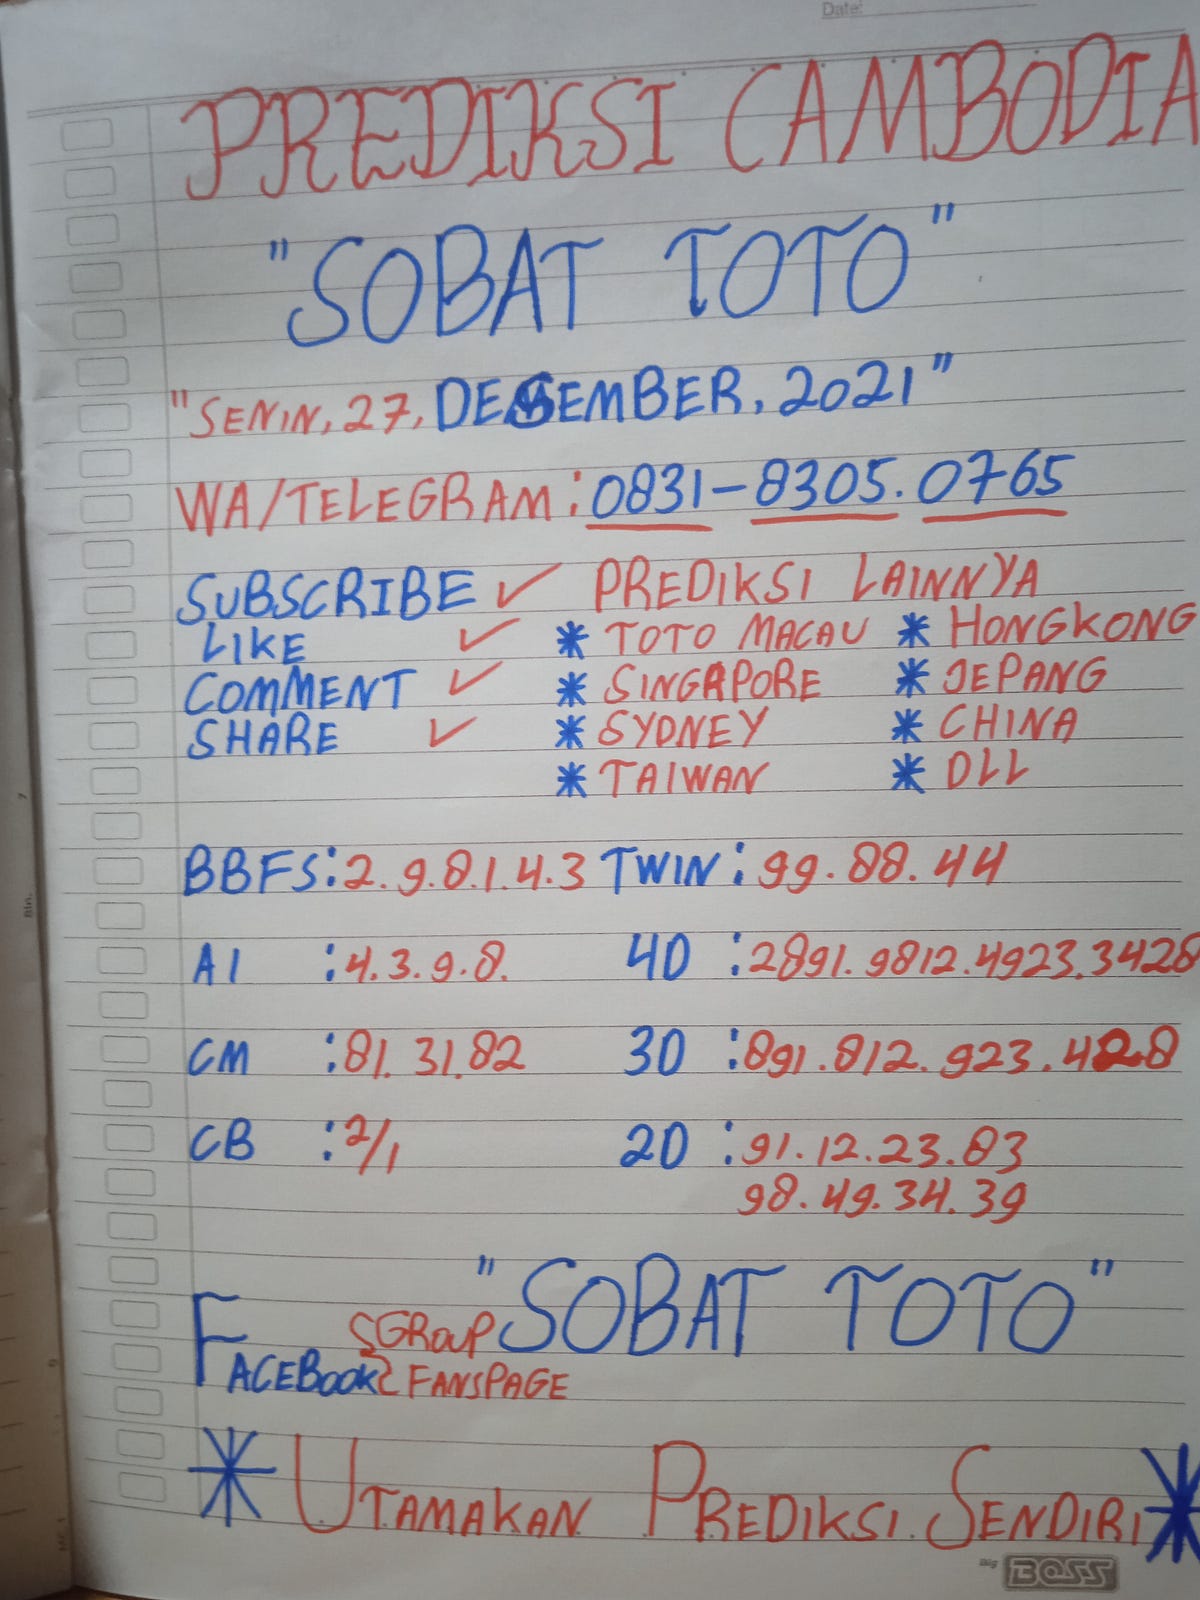 Date:
PREDIKSI CAMBODIA
"SOBAT TOTO"
"SENIN, 27, DESEMBER, 2021"
WA/TELEGRAM : 0831-8305.0765
SUBSCRIBE ✓ PREDIKSI LAINNYA
LIKE ✓ * TOTO MACAU * HONGKONG
COMMENT ✓ * SINGAPORE * JEPANG
SHARE ✓ * SYDNEY * CHINA
* TAIWAN * DLL
BBFS : 2.9.8.1.4.3 TWIN : 99.88.44
AI : 4.3.9.8. 4D : 2891.9812.4923.3428
CM : 81.31.82 3D : 891.812.923.428
CB : 2/1 2D : 91.12.23.83
98.49.34.39
"SOBAT TOTO"
FACEBOOK GROUP
FANSPAGE
* UTAMAKAN PREDIKSI SENDIRI *
Big BOSS